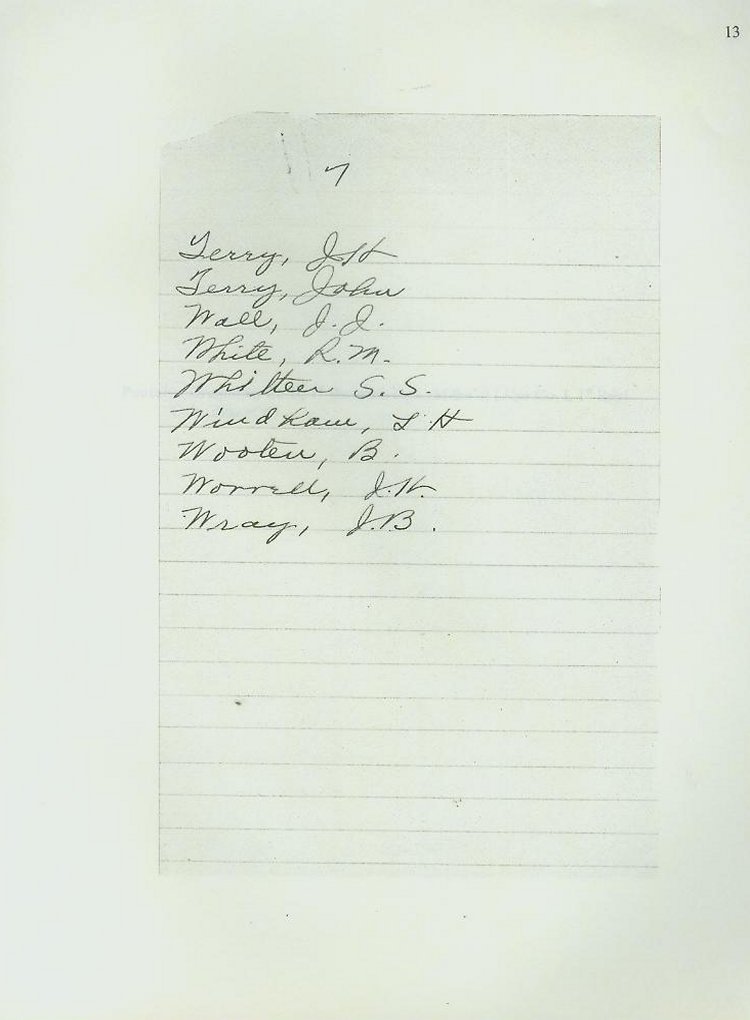 13
7
Terry, J H
Terry, John
Wall, J. J.
White, R. M.
Whitten S. S.
Windham, L H
Wooten, B.
Worrell, J. H.
Wray, J. B.